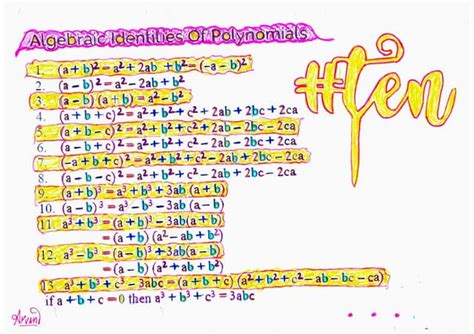 Algebraic Identities Of Polynomials
1. (a + b)² = a² + 2ab + b² = (-a - b)²
2. (a - b)² = a² - 2ab + b²
3. (a - b) (a + b) = a² - b²
4. (a + b + c)² = a² + b² + c² + 2ab + 2bc + 2ca
5. (a + b - c)² = a² + b² + c² + 2ab - 2bc - 2ca
6. (a - b + c)² = a² + b² + c² - 2ab - 2bc + 2ca
7. (-a + b + c)² = a² + b² + c² - 2ab + 2bc - 2ca
8. (a - b - c)² = a² + b² + c² - 2ab + 2bc - 2ca
9. (a + b)³ = a³ + b³ + 3ab (a + b)
10. (a - b)³ = a³ - b³ - 3ab (a - b)
11. a³ + b³ = (a + b)³ - 3ab(a + b)
= (a + b) (a² - ab + b²)
12. a³ - b³ = (a - b)³ + 3ab(a - b)
= (a - b) (a² + ab + b²)
13. a³ + b³ + c³ - 3abc = (a + b + c) (a² + b² + c² - ab - bc - ca)
if a + b + c = 0 then a³ + b³ + c³ = 3abc
#ten